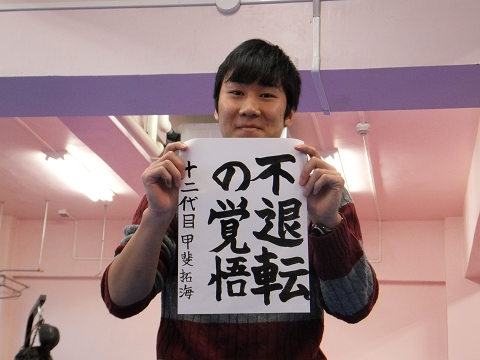 不退転
の覚悟
十二代目甲斐拓海